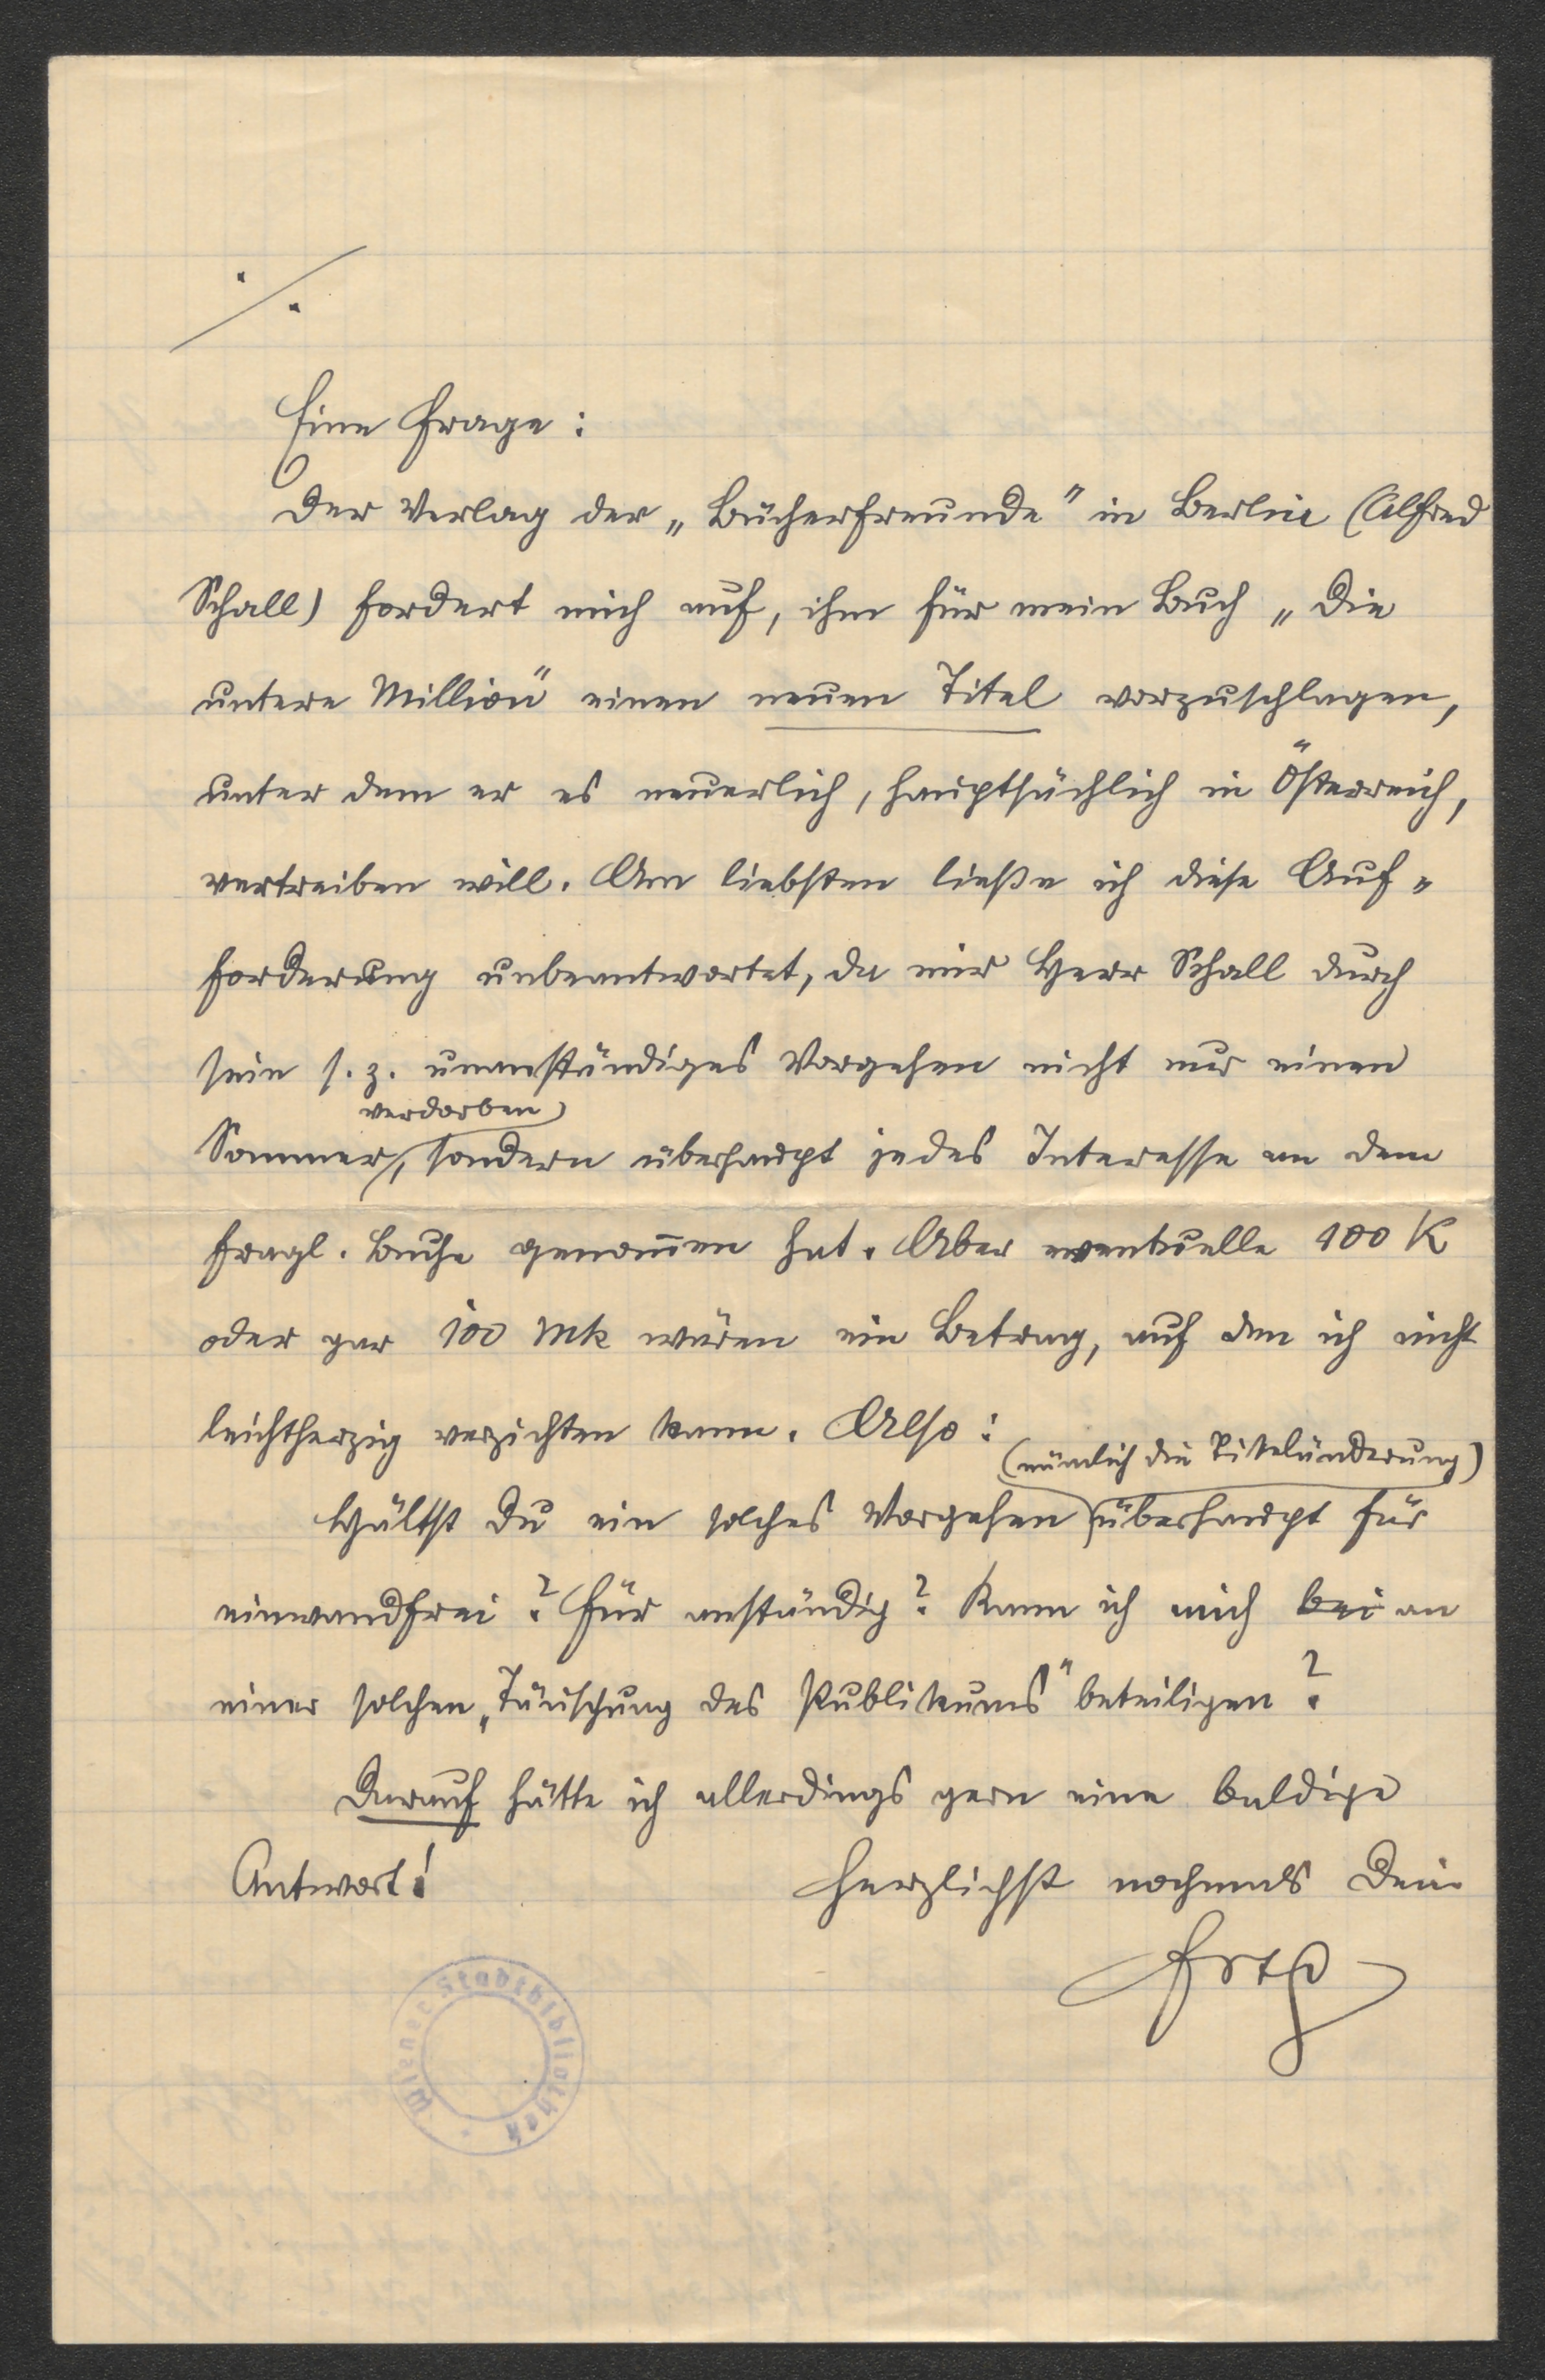 ./.
Eine Frage:
Der Verlag der „Bücherfreunde" in Berlin (Alfred
Schall) fordert mich auf, ihm für mein Buch „Die
untere Million" einen neuen Titel vorzuschlagen,
unter dem er es neuerlich, hauptsächlich in Österreich,
vertreiben will. Am liebsten ließe ich diese Auf-
forderung unbeantwortet, da mir Herr Schall durch
sein s. z. unanständiges Vorgehen nicht nur einen
Sommer verdorben, sondern überhaupt jedes Interesse an dem
fragl. Buche genommen hat. Aber eventuelle 100 K
oder gar 100 Mk wären ein Betrag, auf den ich nicht
leichtherzig verzichten kann. Also:
Hältst Du ein solches Vorgehen (nämlich die Titeländerung) überhaupt für
einwandfrei? Für anständig? Kann ich mich bei an
einer solchen „Täuschung des Publikums" beteiligen?
Darauf hätte ich allerdings gern eine baldige
Antwort! Herzlichst nochmals Dein
Wiener Stadtbibliothek